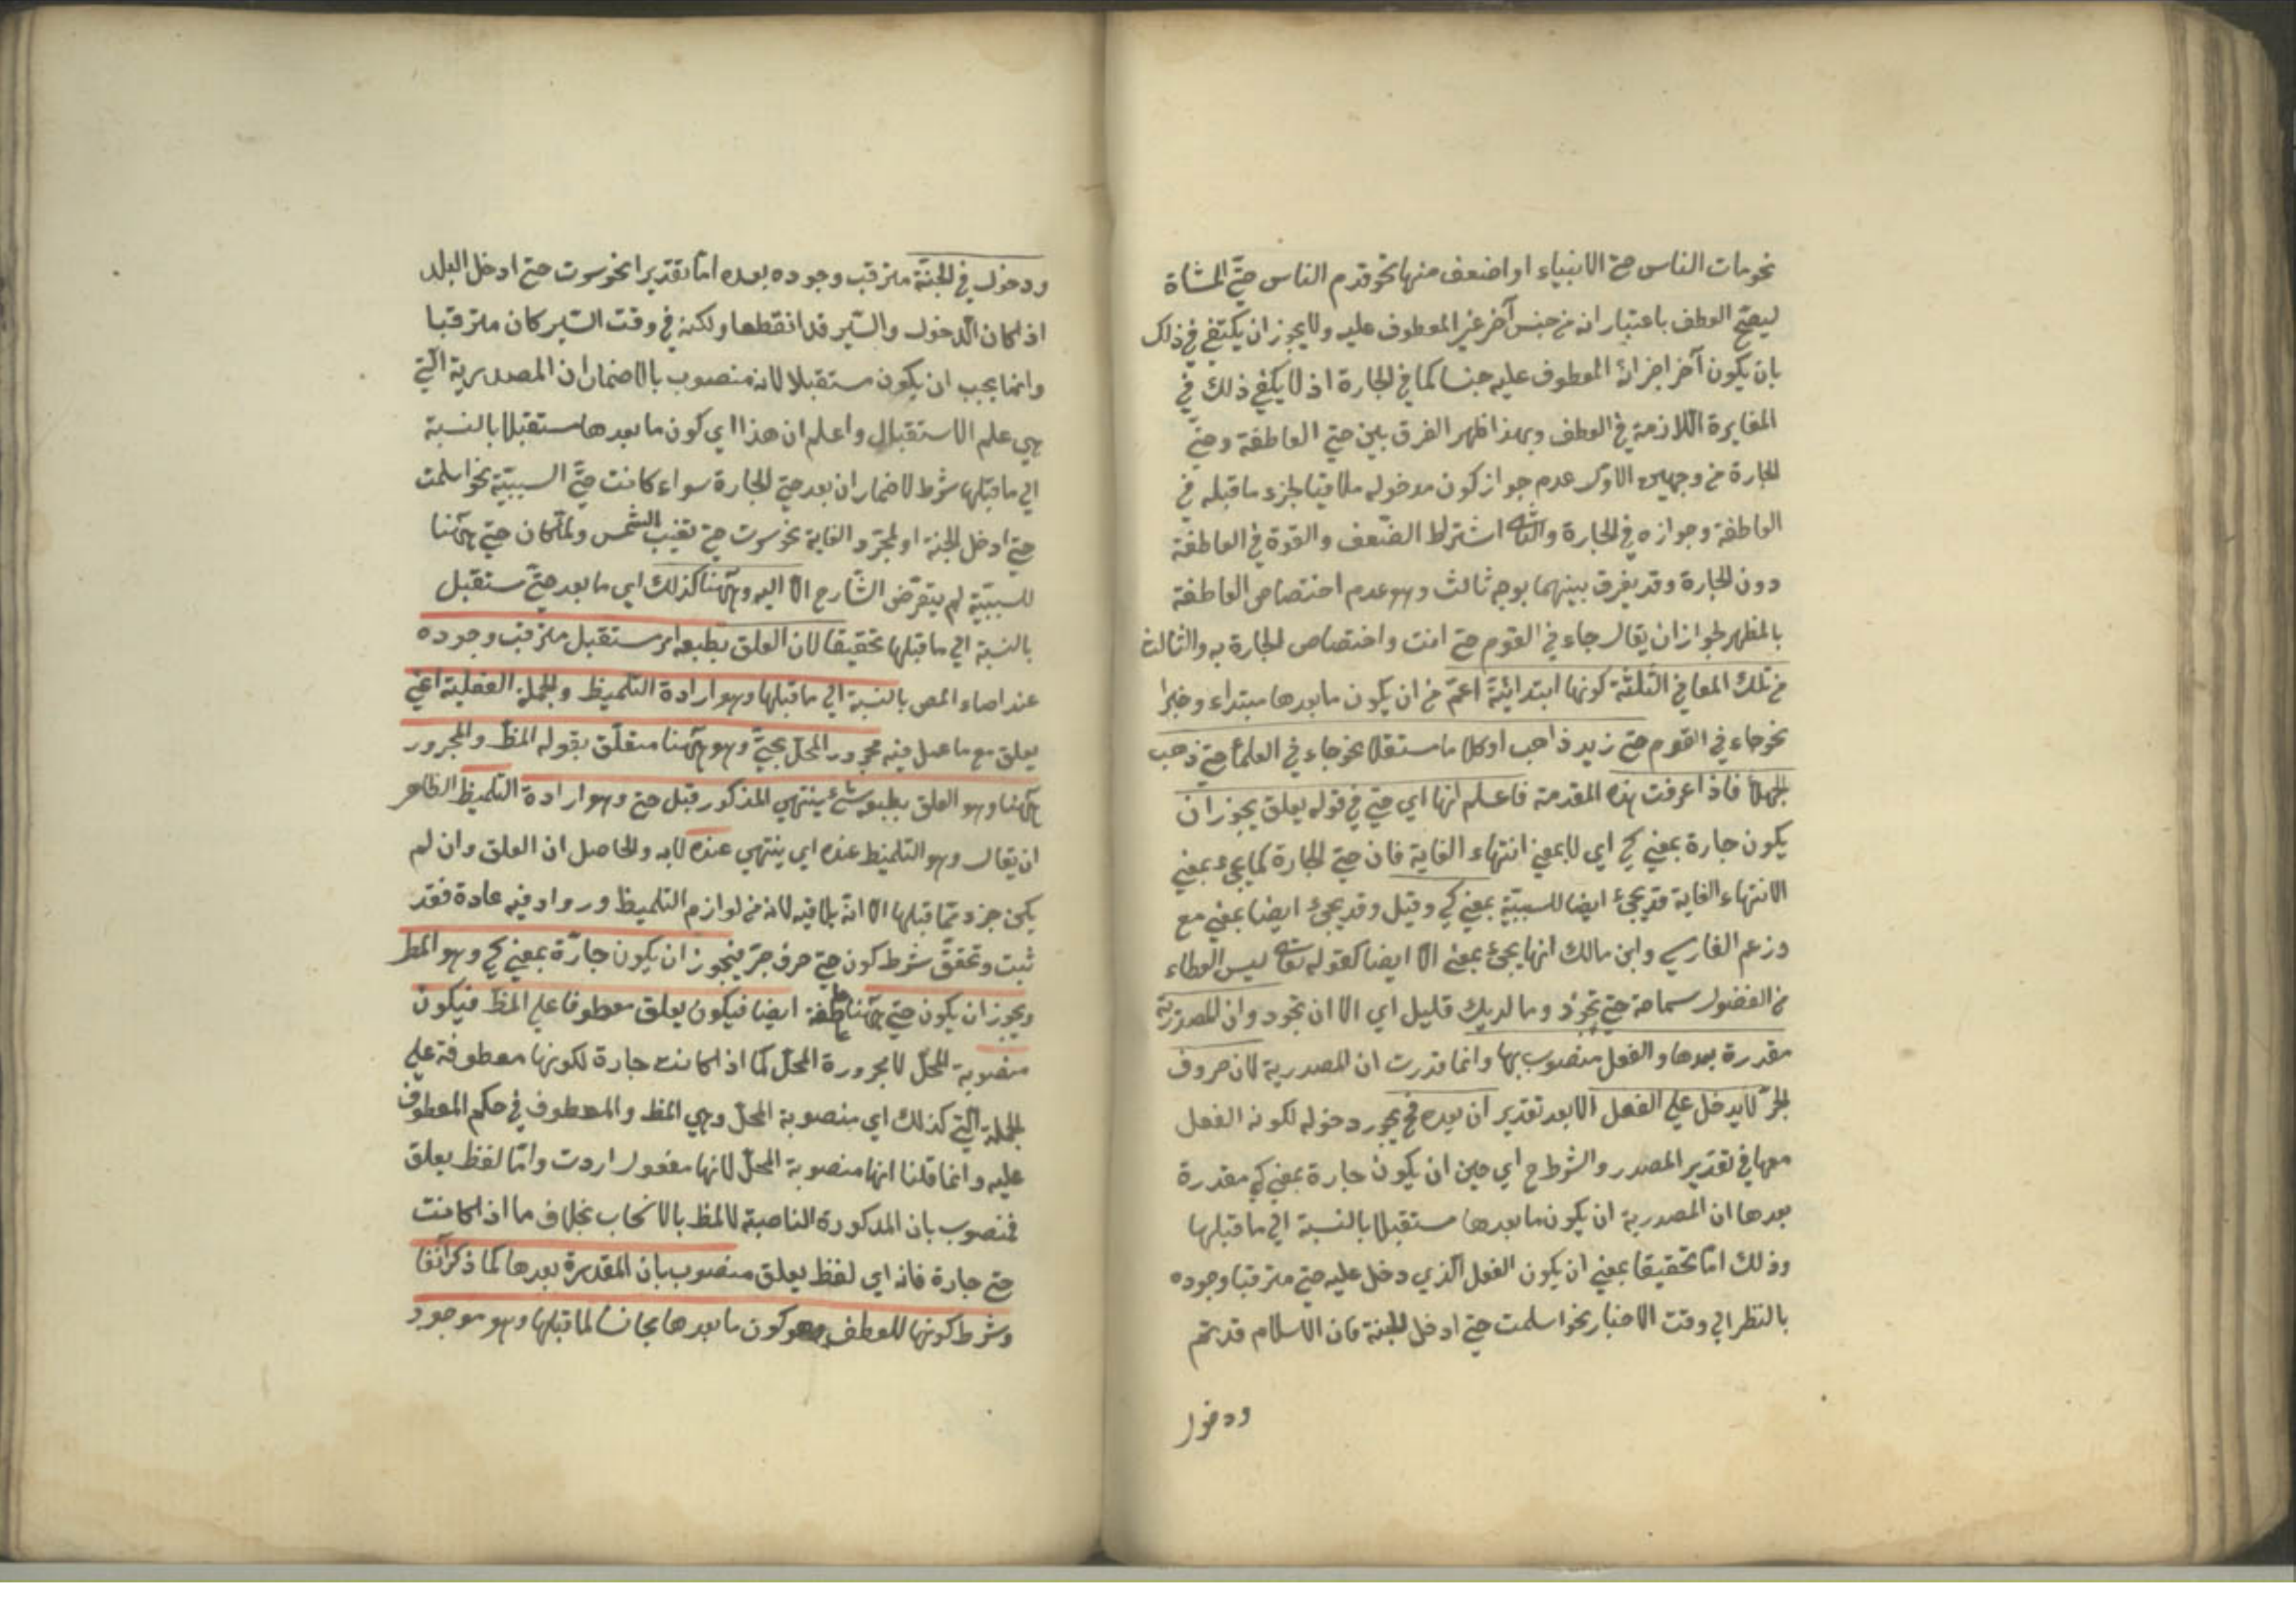 نحو مات الناس حتى الانبياء او اضعف منها نحو قدم الناس حتى المشاة
ليصح العطف باعتبار انه من جنس آخر غير المعطوف عليه ولا يجوز ان يكتفى في ذلك
بان يكون آخر اجزاء المعطوف عليه جنسا كما في الجارة اذ لا يكفي ذلك في
المغايرة اللازمة في العطف وبهذا ظهر الفرق بين حتى العاطفة وحتى
الجارة من وجهين الاول عدم جواز كون مدخوله ملاقيا لجزء ما قبله في
العاطفة وجوازه في الجارة والثاني اشتراط الضعف والقوة في العاطفة
دون الجارة وقد يفرق بينهما بوجه ثالث وهو عدم اختصاص العاطفة
بالمظهر لجواز ان يقال جاءني القوم حتى انت واختصاص الجارة به والثالث
من تلك المعاني الثلثة كونها ابتدائية اعم من ان يكون ما بعدها مبتداء وخبرا
نحو جاءني القوم حتى زيد ذاهب او كلاما مستقلا نحو جاءني العلماء حتى ذهب
الجهلاء فاذا عرفت هذه المقدمة فاعلم انها اي حتى في قوله يعلق يجوز ان
يكون جارة بمعنى كي اي لا بمعنى انتهاء الغاية فان حتى الجارة كما يجيء بمعنى
الانتهاء الغاية قد يجيء ايضا للسببية بمعنى كي وقيل وقد يجيء ايضا بمعنى مع
وزعم الفارسي وابن مالك انها يجيء بمعنى الا ايضا كقوله ليس العطاء
من الفضول سماحة حتى تجود وما لديك قليل اي الا ان تجود وان المصدرية
مقدرة بعدها والفعل منصوب بها وانما قدرت ان المصدرية لان حروف
الجر لا يدخل على الفعل الا بعد تقدير ان بعده فح يجوز دخوله لكونه الفعل
معها في تقدير المصدر والشرط ح اي حين ان يكون جارة بمعنى كي مقدرة
بعدها ان المصدرية ان يكون ما بعدها مستقبلا بالنسبة الى ما قبلها
وذلك اما تحقيقا بمعنى ان يكون الفعل الذي دخل عليه حتى مترقبا وجوده
بالنظر الى وقت الاخبار نحو اسلمت حتى ادخل الجنة فان الاسلام قد تم
ودخول
ودخول في الجنة مترقب وجوده بعده اما تقديرا نحو سرت حتى ادخل البلد
اذا كان الدخول والسير قد انقطعا ولكنه في وقت السير كان مترقبا
وانما يجب ان يكون مستقبلا لانه منصوب بالاضمار ان المصدرية التي
هي علم الاستقبال واعلم ان هذا اي كون ما بعدها مستقبلا بالنسبة
الى ما قبلها شرط لاضمار ان بعد حتى الجارة سواء كانت حتى السببية نحو اسلمت
حتى ادخل الجنة او لمجرد الغاية نحو سرت حتى تغيب الشمس ولما كان حتى ههنا
للسببية لم يتعرض الشارح الا اليه وههنا كذلك اي ما بعد حتى مستقبل
بالنسبة الى ما قبلها تحقيقا لان العلق بطبعه امر مستقبل مترقب وجوده
عند المص بالنسبة الى ما قبلها وهو ارادة التلميظ والجملة الفعلية اعني
يعلق مع ما عمل فيه مجرور المحل بحتى وهو ههنا متعلق بقوله المظ والمجرور
ههنا وهو العلق بطبعه شئ ينتهي المذكور قبل حتى وهو ارادة التلميظ الظاهر
ان يقال وهو التلميظ عنده اي ينتهي عنده لا به والحاصل ان العلق وان لم
يكن جزء مما قبلها الا انه يلاقيه لانه من لوازم التلميظ وروادفه عادة فقد
ثبت وتحقق شرط كون حتى حرف جر فيجوز ان يكون جارة بمعنى كي وهو المط
ويجوز ان يكون حتى ههنا عاطفة ايضا فيكون يعلق معطوفا على المظ فيكون
منصوبة المحل لا مجرورة المحل كما اذا كانت جارة لكونها معطوفة على
الجملة التي كذلك اي منصوبة المحل وهي المظ والمعطوف في حكم المعطوف
عليه وانما قلنا انها منصوبة المحل لانها مفعول اردت واما لفظ يعلق
فمنصوب بان المذكورة الناصبة لالمظ بالانسحاب بخلاف ما اذا كانت
حتى جارة فانه اي لفظ يعلق منصوب بان المقدرة بعدها كما ذكر آنفا
وشرط كونها للعطف وهو كون ما بعدها مجانسا لما قبلها وهو موجود